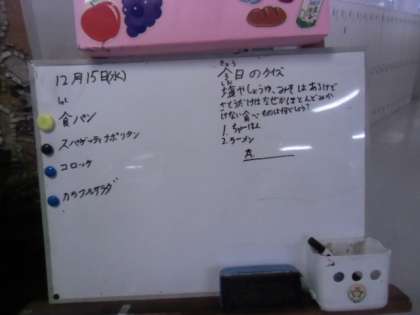 12月15日(水)
食パン
スパゲッティナポリタン
コロッケ
カラフルサラダ
きょう
今日のクイズ
しお
塩やしょうゆ、みそはあるけど
さとうだけはなぜかほとんどみか
けない食べものは何でしょう
1.ちゃーはん
2.ラーメン
A.